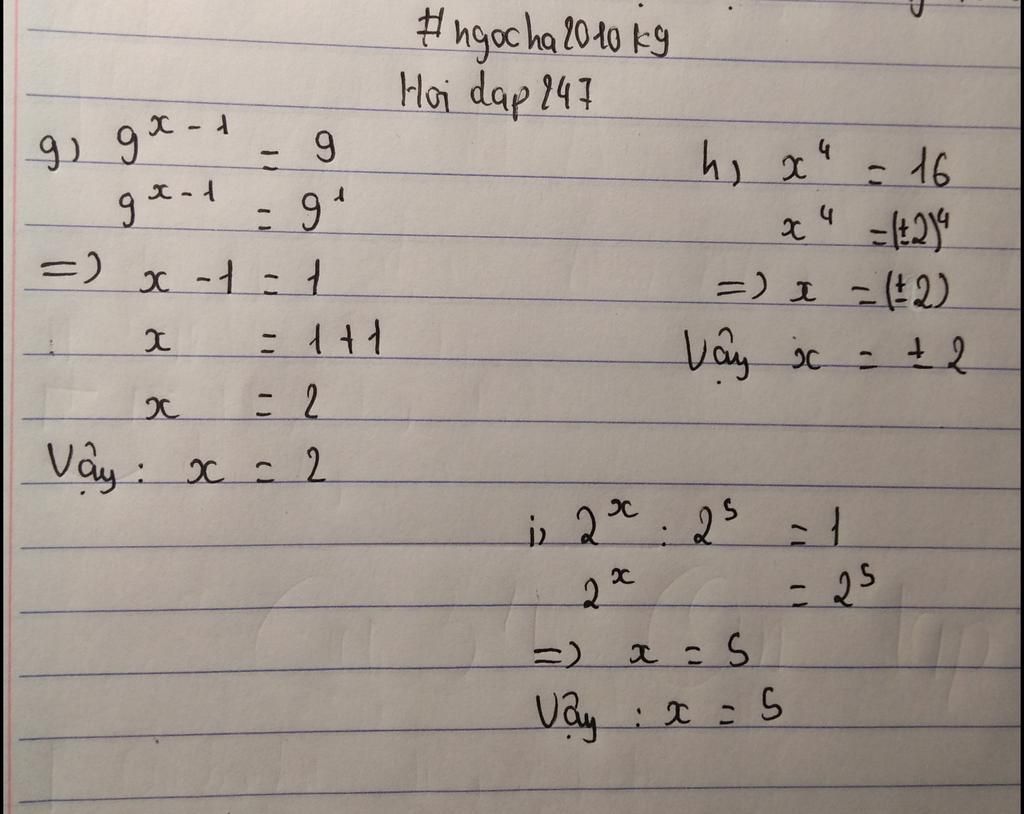 #ngocha2010kg
Hoi dap 247
g) 9^{x-1} = 9
9^{x-1} = 9^1
=) x - 1 = 1
x = 1 + 1
x = 2
Vậy : x = 2
h) x^4 = 16
x^4 = (±2)^4
=) x = (±2)
Vậy x = ± 2
i) 2^x : 2^5 = 1
2^x = 2^5
=) x = 5
Vậy : x = 5